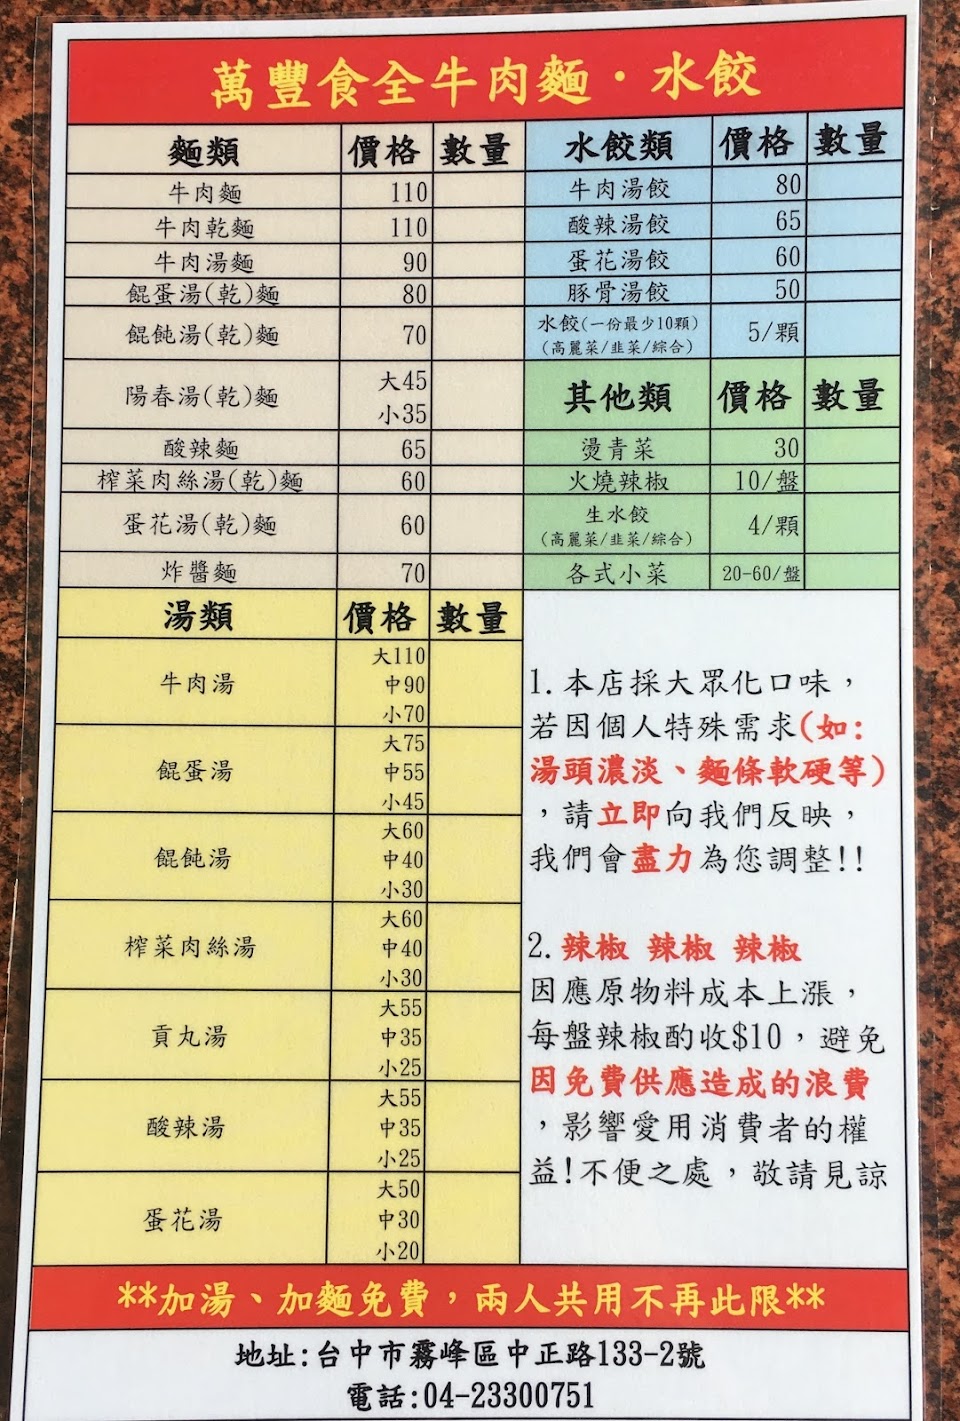 萬豐食全牛肉麵・水餃
麵類 價格 數量
牛肉麵 110
牛肉乾麵 110
牛肉湯麵 90
餛蛋湯(乾)麵 80
餛飩湯(乾)麵 70
陽春湯(乾)麵 大45
小35
酸辣麵 65
榨菜肉絲湯(乾)麵 60
蛋花湯(乾)麵 60
炸醬麵 70
水餃類 價格 數量
牛肉湯餃 80
酸辣湯餃 65
蛋花湯餃 60
豚骨湯餃 50
水餃(一份最少10顆) 5/顆
(高麗菜/韭菜/綜合)
其他類 價格 數量
燙青菜 30
火燒辣椒 10/盤
生水餃 4/顆
(高麗菜/韭菜/綜合)
各式小菜 20-60/盤
湯類 價格 數量
牛肉湯 大110
中90
小70
餛蛋湯 大75
中55
小45
餛飩湯 大60
中40
小30
榨菜肉絲湯 大60
中40
小30
貢丸湯 大55
中35
小25
酸辣湯 大55
中35
小25
蛋花湯 大50
中30
小20
1.本店採大眾化口味，
若因個人特殊需求(如:
湯頭濃淡、麵條軟硬等)
，請立即向我們反映，
我們會盡力為您調整!!
2.辣椒 辣椒 辣椒
因應原物料成本上漲，
每盤辣椒酌收$10，避免
因免費供應造成的浪費
，影響愛用消費者的權
益!不便之處，敬請見諒
**加湯、加麵免費，兩人共用不再此限**
地址:台中市霧峰區中正路133-2號
電話:04-23300751